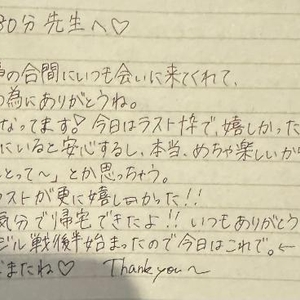 80分 先生へ♡
の合間にいつも会いに来てくれて、
の為にありがとうね。
なってます。今日はラスト枠で、嬉しかった
にいると安心するし、本当、めちゃ楽しいか
とって〜」とか思っちゃう。
ストが更に嬉しかった!!
気分で帰宅できたよ!! いつもありがとう
ジル戦後半始まったので今日はこれで。←
またね♡ Thank you〜